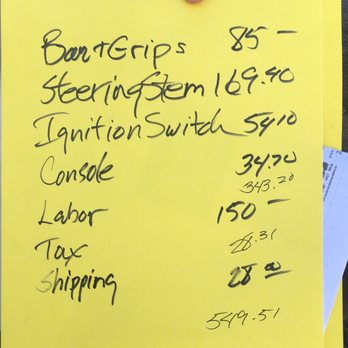 Bar + Grips 85 —
Steering Stem 169.40
Ignition Switch 54.10
Console 34.70
343.20
Labor 150 —
Tax 28.31
Shipping 28.00
549.51